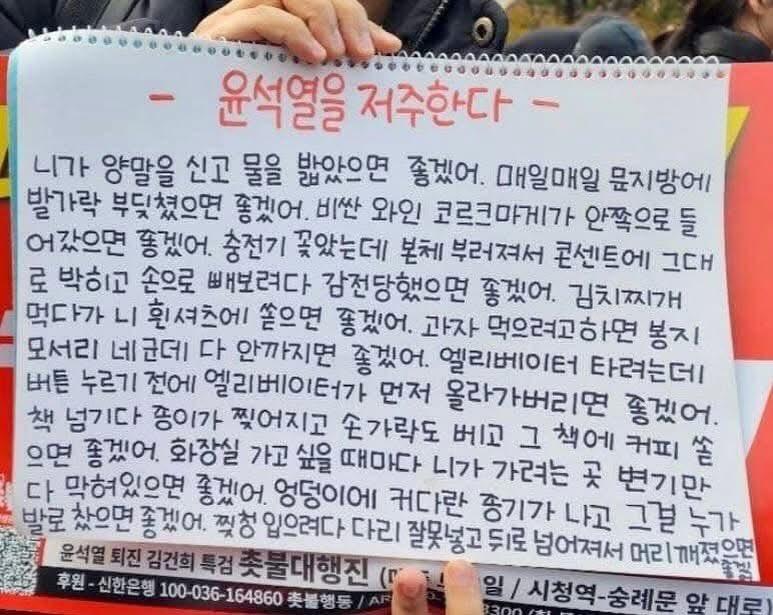 - 윤석열을 저주한다 -
니가 양말을 신고 물을 밟았으면 좋겠어. 매일매일 문지방에
발가락 부딪쳤으면 좋겠어. 비싼 와인 코르크마게가 안쪽으로 들
어갔으면 좋겠어. 충전기 꽂았는데 본체 부러져서 콘센트에 그대
로 박히고 손으로 빼보려다 감전당했으면 좋겠어. 김치찌개
먹다가 니 흰셔츠에 쏟으면 좋겠어. 과자 먹으려고하면 봉지
모서리 네군데 다 안까지면 좋겠어. 엘리베이터 타려는데
버튼 누르기 전에 엘리베이터가 먼저 올라가버리면 좋겠어.
책 넘기다 종이가 찢어지고 손가락도 베고 그 책에 커피 쏟
으면 좋겠어. 화장실 가고 싶을 때마다 니가 가려는 곳 변기만
다 막혀있으면 좋겠어. 엉덩이에 커다란 종기가 나고 그걸 누가
발로 찼으면 좋겠어. 찢청 입으려다 다리 잘못넣고 뒤로 넘어져서 머리 깨졌으면
좋겠어
윤석열 퇴진 김건희 특검 촛불대행진 (매주 토 일 / 시청역-숭례문 앞 대로)
후원 - 신한은행 100-036-164860 촛불행동 / 3300